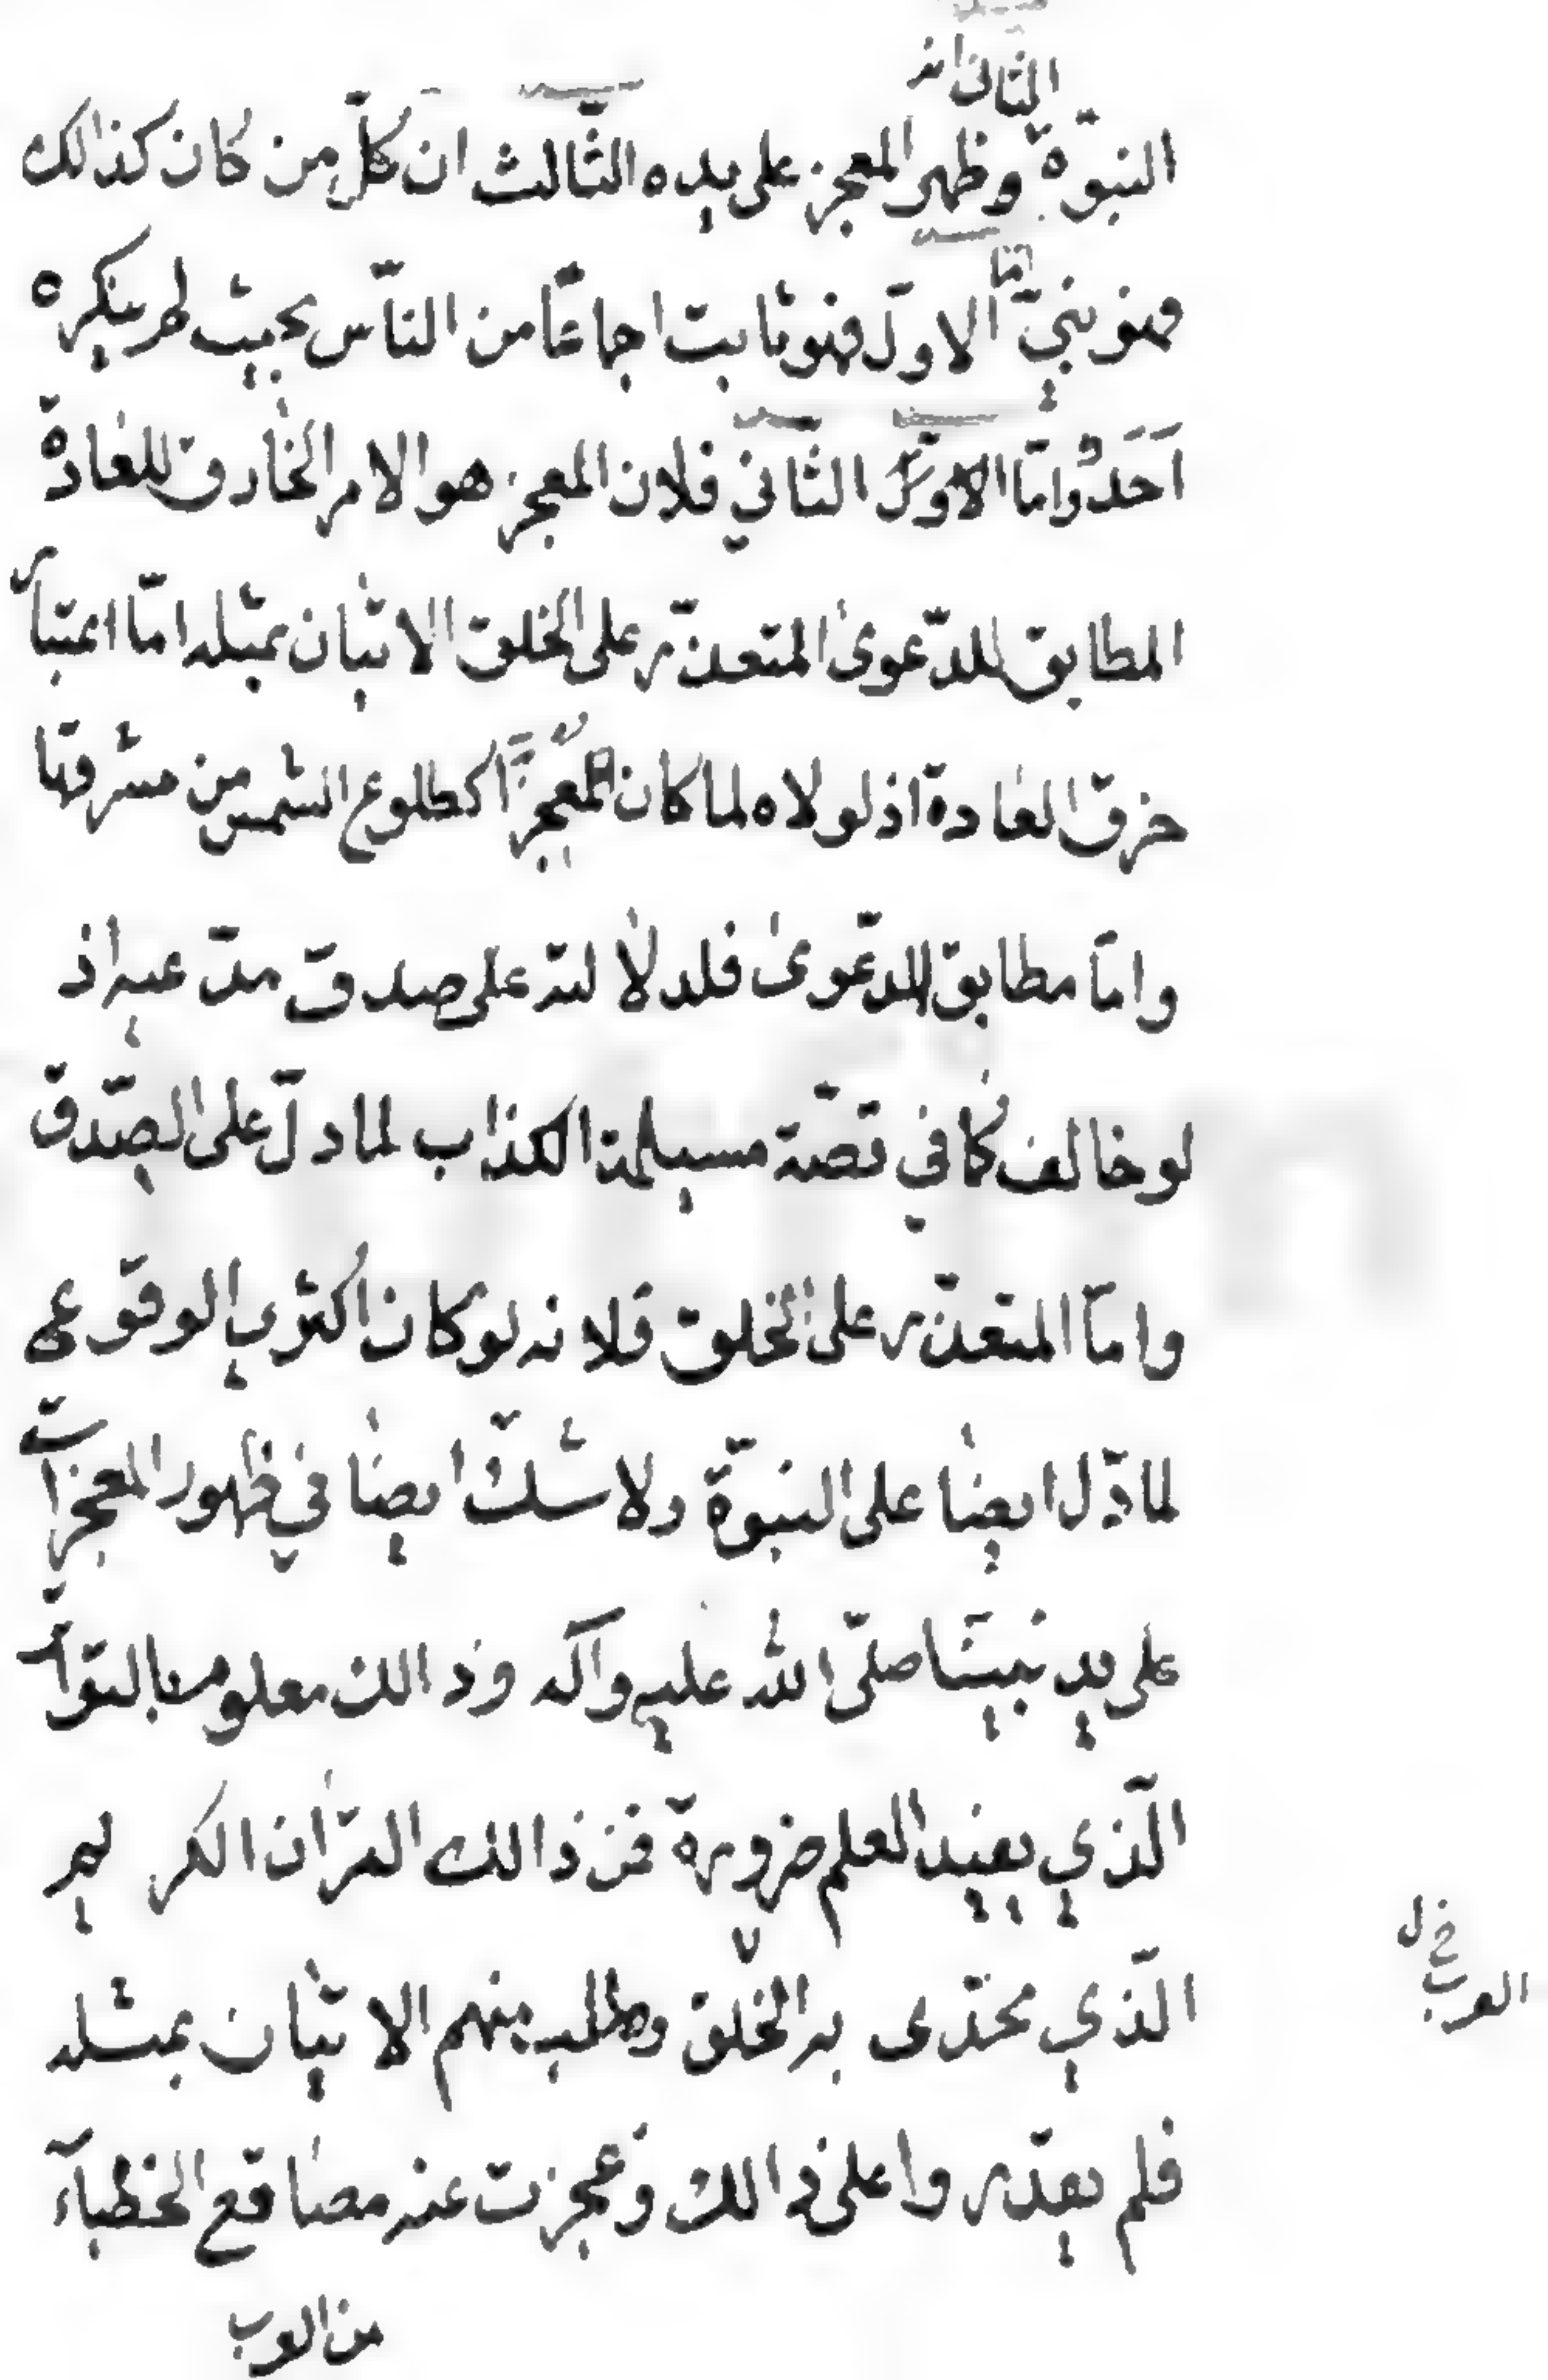 الثاني انه
النبوّة وظهر المعجز على يده الثّالث ان كلّ من كان كذالك
فهو نبيّ امّا الاوّل فهو ثابت اجماعًا من النّاس بحيث لم ينكره
اَحَدٌ وامّا الثّاني فلان المعجز هو الامر الخارق للعادة
المطابق للدّعوى المتعذّر على الخلق الاتيان بمثله امّا اعتبار
خرق العادة اذ لولاه لما كان مُعجِزًا كطلوع الشمس من مشرقها
وامّا مطابق للدّعوى فلدلالته على صدق مدّعيه اذ
لو خالف كما في قصّة مسيلمة الكذاب لما دلّ على الصّدق
وامّا المتعذّر على الخلق فلانه لو كان اكثري الوقوع
لما دّل ايضا على النبوّة ولا شكّ ايضا في ظهور المعجزات
على يد نبيّنا صلّى الله عليه وآله وذالك معلوم بالتواتر
الّذي يفيد العلم ضرورة فمن ذالك القرآن الكريم
الّذي تحدّى به الخلق وطلب منهم الاتيان بمثله
خ ل
العرب
فلم يقدّروا على ذالك وعجزت عنه مصاقع الخطبآء
من العرب